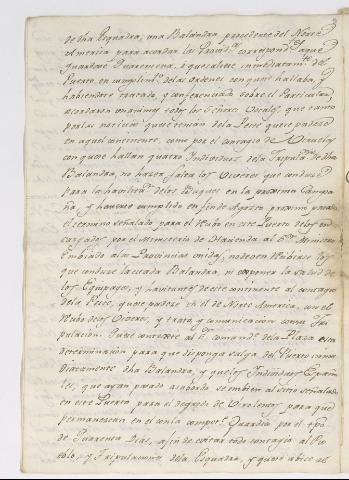 de dha Esquadra, una Balandra procedente del Norte
America para acordar las Provid.s correspond.tes a que
guardase Quarentena, ó que saliese inmediatam.te del
Puerto, en cumplim.to de las ordenes con que se hallaba, y
habiendose tratado, y conferenciado sobre el Particular,
acordaron unanimes todos los Señores Vocales, que tanto
por las noticias que se tenian de la Peste que se padece
en aquel continente, como por el contagio de Viruelas
con que se hallan quatro Individuos de la Tripulac.on de dha
Balandra, no hacen falta los Viveres que conduce
para la havilitac.on de los Buques en la proxima Campa
ña, y haverse cumplido en fin de Agosto proximo pasado
el termino señalado para el Recibo en este Puerto de los en
cargados por el Ministerio de Hacienda al S.or Ministro
Embiado a las Provincias unidas, no deven recibirse los
que conduce la citada Balandra, ni exponer la salud de
los Equipages, y havitantes de este continente al contagio
de la Peste, que se padece en el de Norte America, con el
Recibo de los Viveres, y trato, y comunicacion con su Tri
pulacion. Que se conteste al S.or comand.te de la Plaza esta
determinacion para que disponga salga del Puerto inme
diatamente dha Balandra, y que los Individuos Españo
les, que ayan pasado a su bordo se embien al sitio señalado
en este Puerto para el degredo de Virolentos para que
permanescan en el con la compet.te Guardia por el tpo
de Quarenta Dias, a fin de evitar todo contagio al Pue
blo, y Tripulaciones de la Esquadra, y que se avise al